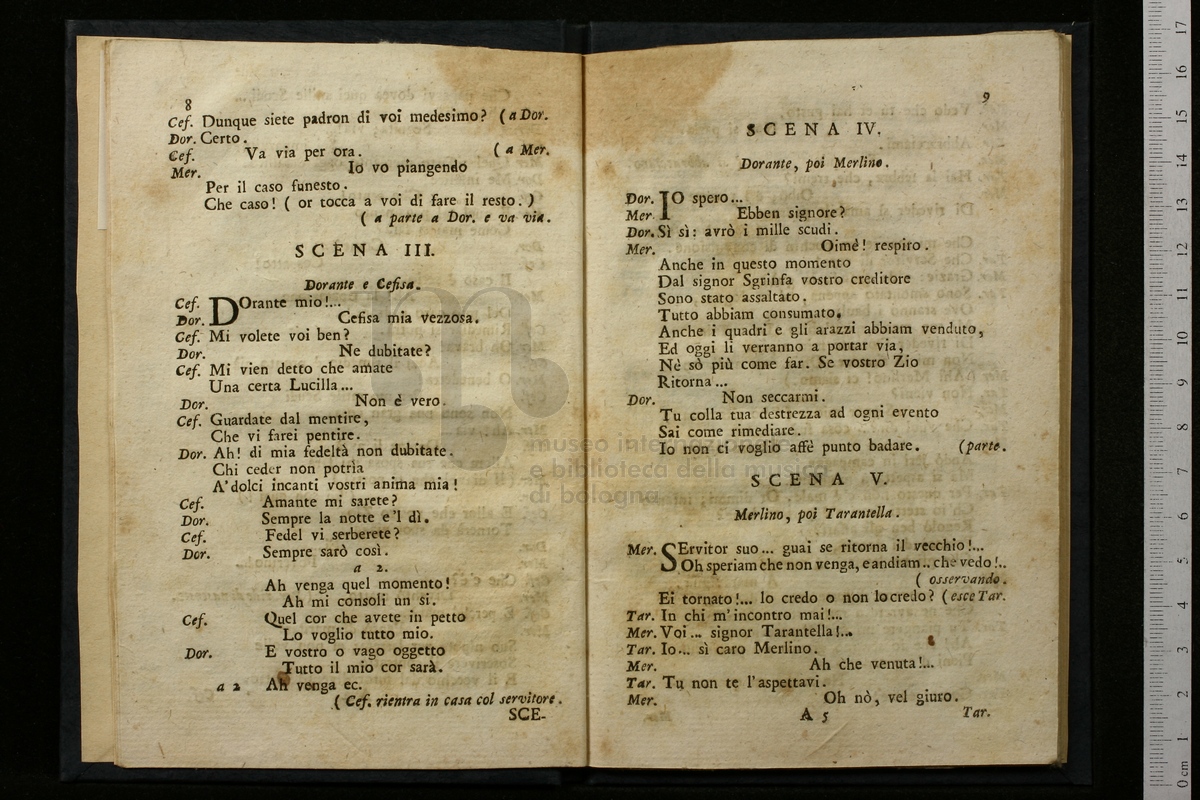 8
Cef. Dunque siete padron di voi medesimo? ( a Dor.
Dor. Certo.
Cef. Va via per ora. ( a Mer.
Mer. Io vo piangendo
Per il caso funesto.
Che caso! ( or tocca a voi di fare il resto. )
( a parte a Dor. e va via.
SCENA III.
Dorante e Cefisa.
Cef. DOrante mio!...
Dor. Cefisa mia vezzosa.
Cef. Mi volete voi ben?
Dor. Ne dubitate?
Cef. Mi vien detto che amate
Una certa Lucilla...
Dor. Non è vero.
Cef. Guardate dal mentire,
Che vi farei pentire.
Dor. Ah! di mia fedeltà non dubitate.
Chi ceder non potria
A' dolci incanti vostri anima mia!
Cef. Amante mi sarete?
Dor. Sempre la notte e'l dì.
Cef. Fedel vi serberete?
Dor. Sempre sarò così.
a 2.
Ah venga quel momento!
Ah mi consoli un si.
Cef. Quel cor che avete in petto
Lo voglio tutto mio.
Dor. E vostro o vago oggetto
Tutto il mio cor sarà.
a 2 Ah venga ec.
( Cef. rientra in casa col servitore.
SCE-
9
SCENA IV.
Dorante, poi Merlino.
Dor. IO spero...
Mer. Ebben signore?
Dor. Sì sì: avrò i mille scudi.
Mer. Oimè! respiro.
Anche in questo momento
Dal signor Sgrinfa vostro creditore
Sono stato assaltato.
Tutto abbiam consumato.
Anche i quadri e gli arazzi abbiam venduto,
Ed oggi li verranno a portar via,
Nè sò più come far. Se vostro Zio
Ritorna...
Dor. Non seccarmi.
Tu colla tua destrezza ad ogni evento
Sai come rimediare.
Io non ci voglio affè punto badare. (parte.
SCENA V.
Merlino, poi Tarantella.
Mer. SErvitor suo... guai se ritorna il vecchio!...
Oh speriam che non venga, e andiam.. che vedo!..
( osservando.
Ei tornato!... lo credo o non lo credo? ( esce Tar.
Tar. In chi m'incontro mai!...
Mer. Voi... signor Tarantella!...
Tar. Io... sì caro Merlino.
Mer. Ah che venuta!...
Tar. Tu non te l'aspettavi.
Mer. Oh nò, vel giuro.
A 5 Tar.
museo internazionale
e biblioteca della musica
di bologna
0 cm 1 2 3 4 5 6 7 8 9 10 11 12 13 14 15 16 17